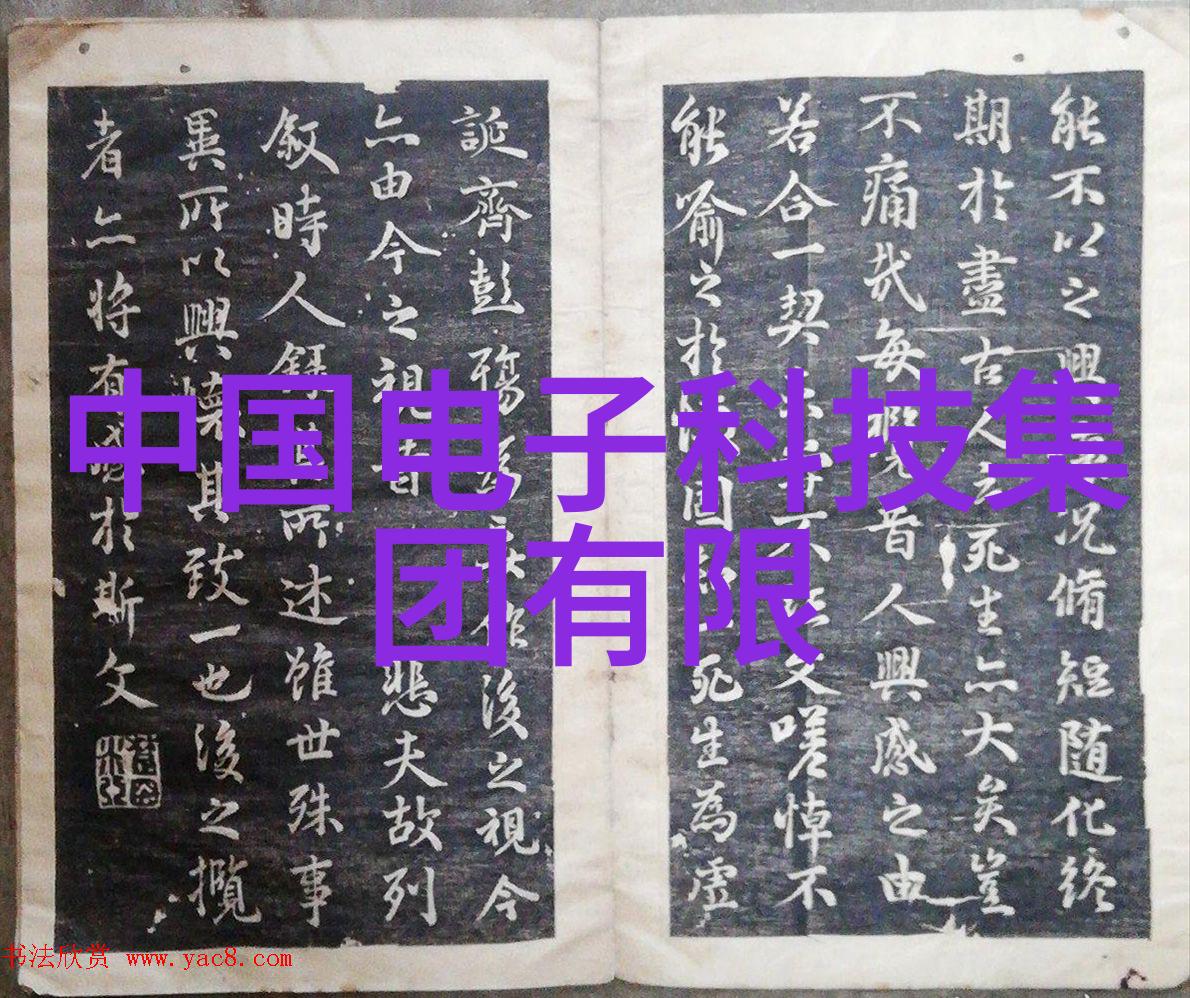 中国电子科技集
团有限
能不以之興況脩短随化終
期於盡古人云死生亦大矣豈
不痛哉每昔人興感之由
若合一契不文嗟悼不
能喻之於固死生為虛
誕齊彭殤作後之視今
亦由今之視昔悲夫故列
敘時人錄所述雖世殊事
異所以興懷其致一也後之攬
者亦将有於斯文
书法欣赏 www.yac8.com